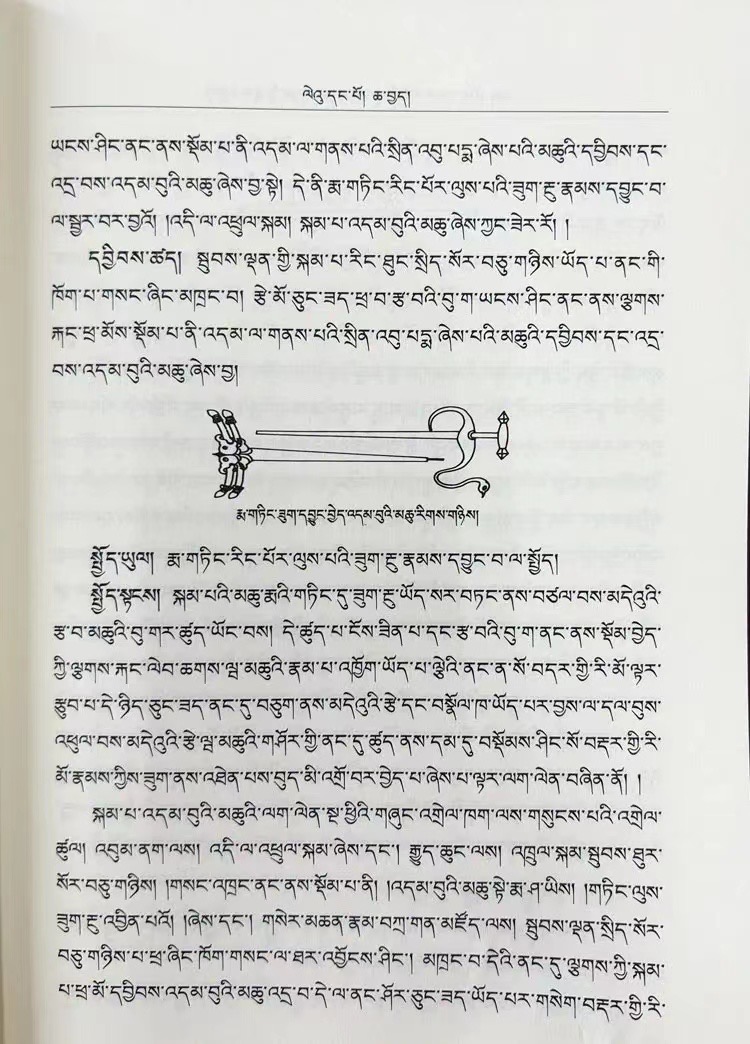 ལེའུ་དང་པོ། ཆ་བྱད།
ཡངས་ཤིང་ནང་ནས་སྡོམ་པ་ནི་འདམ་ལ་གནས་པའི་སྲིན་འབུ་པདྨ་ཞེས་པའི་མཆུའི་དབྱིབས་དང་
འདྲ་བས་འདམ་བུའི་མཆུ་ཞེས་བྱ་སྟེ། དེ་ནི་རྨ་གཏིང་རིང་པོར་ལུས་པའི་ཟུག་རྔུ་རྣམས་དབྱུང་བ་
ལ་སྦྱར་བར་བྱའོ། །འདི་ལ་འཕྲུལ་སྐམ། སྐམ་པ་འདམ་བུའི་མཆུ་ཞེས་ཀྱང་ཟེར་རོ། །
དབྱིབས་ཚད། སྦུབས་ལྡན་གྱི་སྐམ་པ་རིང་ཐུང་སྲིད་སོར་བཅུ་གཉིས་ཡོད་པ་ནང་གི་
ཁོག་པ་གསང་ཞིང་མཁྲང་བ། རྩེ་མོ་ཅུང་ཟད་ཕྲ་བ་རྩ་བའི་བུ་ག་ཡངས་ཤིང་ནང་ནས་ལྕགས་
རྐང་ཕྲ་མོས་སྡོམ་པ་ནི་འདམ་ལ་གནས་པའི་སྲིན་འབུ་པདྨ་ཞེས་པའི་མཆུའི་དབྱིབས་དང་འདྲ་
བས་འདམ་བུའི་མཆུ་ཞེས་བྱ།
རྨ་གཏིང་ཟུག་དབྱུང་བྱེད་འདམ་བུའི་མཆུ་རིགས་གཉིས།
སྤྱོད་ཡུལ། རྨ་གཏིང་རིང་པོར་ལུས་པའི་ཟུག་རྔུ་རྣམས་དབྱུང་བ་ལ་སྤྱོད།
སྤྱོད་སྟངས། སྐམ་པའི་མཆུ་རྨའི་གཏིང་དུ་ཟུག་རྔུ་ཡོད་སར་བཏང་ནས་བཙལ་བས་མདེའུའི་
རྩ་བ་མཆུའི་བུ་གར་ཚུད་ཡོང་བས། དེ་ཚུད་པ་ངོས་ཟིན་པ་དང་རྩ་བའི་བུ་ག་ནང་ནས་སྡོམ་བྱེད་
ཀྱི་ལྕགས་རྐང་ལེབ་ཆགས་ལྦ་མཆུའི་རྣམ་པ་འཁྱོག་ཡོད་པ་ལྕེའི་ནང་ན་སོ་བདར་གྱི་རི་མོ་ལྟར་
རྩུབ་པ་དེ་ཉིད་ཅུང་ཟད་ནང་དུ་བཅུག་ནས་མདེའུའི་རྩེ་དང་བསྣོལ་ཁ་ཡོད་པར་བྱས་ལ་དལ་བུས་
འཕུལ་བས་མདེའུའི་རྩེ་ལྦ་མཆུའི་གཤོར་གྱི་ནང་དུ་ཚུད་ནས་དམ་དུ་བསྡོམས་ཤིང་སོ་བརྡར་གྱི་རི་
མོ་རྣམས་ཀྱིས་ཟུག་ནས་འཐེན་པས་བུད་མི་འགྲོ་བར་བྱེད་པ་ཞེས་པ་ལྟར་ལག་ལེན་བཞིན་ནོ། །
སྐམ་པ་འདམ་བུའི་མཆུའི་ལག་ལེན་སྔ་ཕྱིའི་གཞུང་འགྲེལ་ཁག་ལས་གསུངས་པའི་འགྲེལ་
ཚུལ། འབུམ་ནག་ལས། འདི་ལ་འཕྲུལ་སྐམ་ཞེས་དང་། རྒྱུད་ཆུང་ལས། འཁྲུལ་སྐམ་སྦུབས་ཐུར་
སོར་བཅུ་གཉིས། །གསང་འཁྲང་ནང་ནས་སྡོམ་པ་ནི། །འདམ་བུའི་མཆུ་སྟེ་རྨ་ཤ་ཡིས། །གཏིང་ལུས་
ཟུག་རྔུ་འབྱིན་པའོ། །ཞེས་དང་། གསེར་མཆན་རྣམ་བཀྲ་གན་མཛོད་ལས། སྦུབས་ལྡན་སྲིད་སོར་
བཅུ་གཉིས་པ་ཕྲ་ཞིང་ཁོག་གསང་ལ་ཐར་འབྱོངས་ཤིང་། མཁྲང་བ་དེའི་ནང་དུ་ལྕགས་ཀྱི་སྐམ་
པ་ཕྲ་མོ་དབྱིབས་འདམ་བུའི་མཆུ་འདྲ་བ་དེ་ལ་ནང་ཤོར་ཅུང་ཟད་ཡོད་པར་གསེག་བརྡར་གྱི་རི་